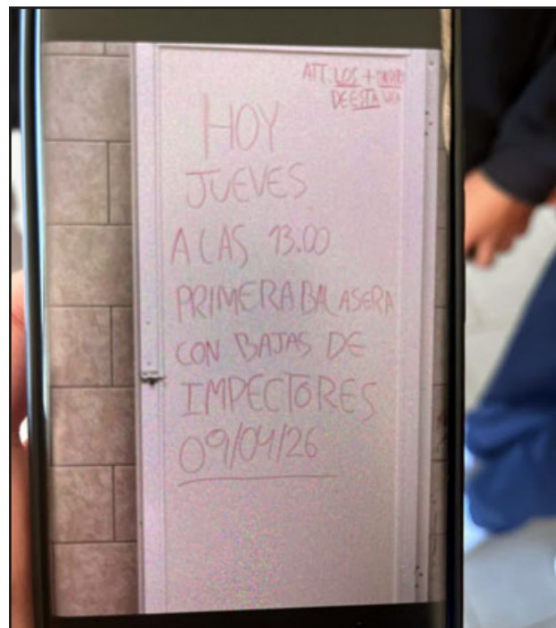 ATT. LOS +
DE ESTA
HOY
JUEVES
A LAS 13.00
PRIMERA BALASERA
CON BAJAS DE
IMPECTORES
09/04/26